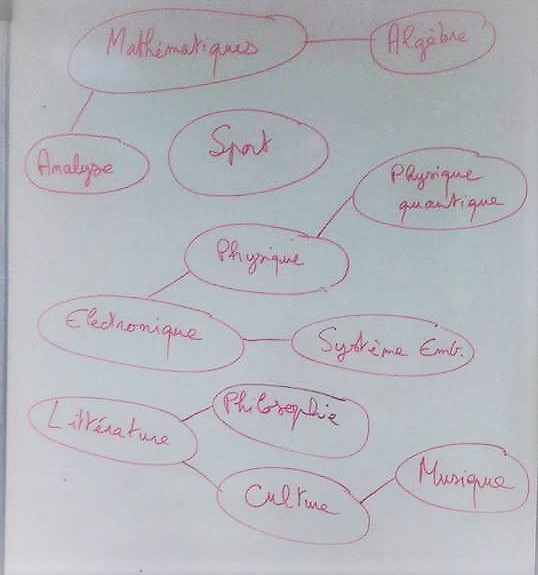 Mathématiques
Algèbre
Analyse
Sport
Physique
quantique
Physique
Electronique
Système Emb.
Philosophie
Littérature
Culture
Musique